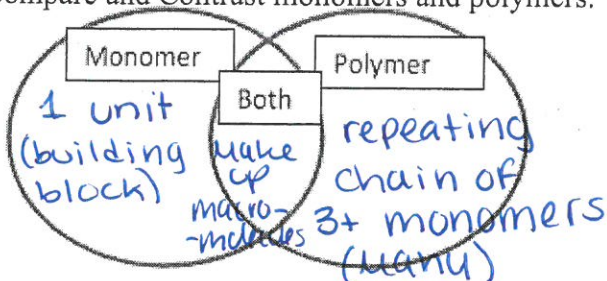 Compare and Contrast monomers and polymers.
Monomer
1 unit
(building
block)
Both
make
up
macro-
-molecules
Polymer
repeating
chain of
3+ monomers
(many)